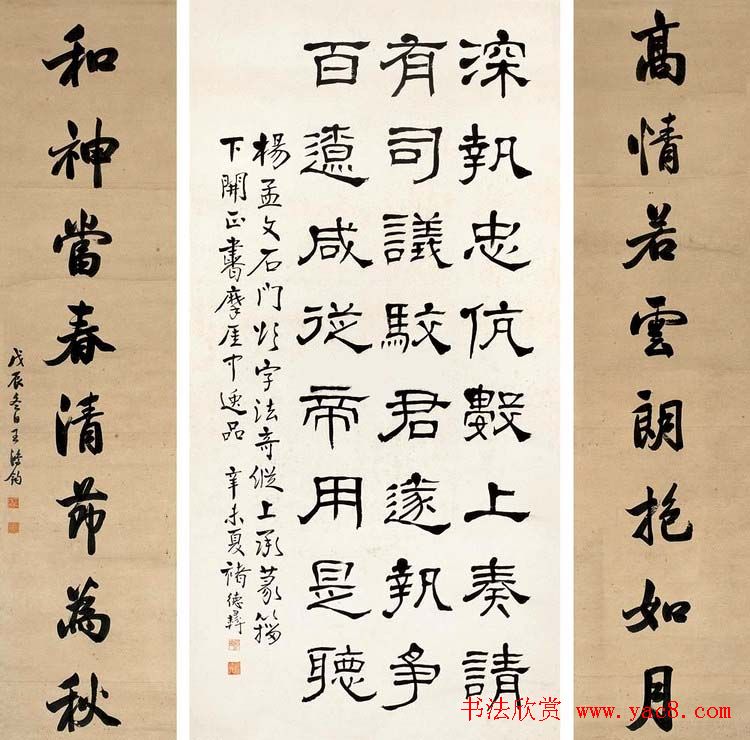 高情若雲朗抱如月
深執忠伉數上奏請
有司議駮君遂執爭
百遼咸從帝用是聽
楊孟文石門頌字法奇縱上承篆籀
下開正書摩厓中逸品 辛未夏 褚德彝
和神當春清節為秋
戊辰冬日王
书法欣赏 www.yac8.com